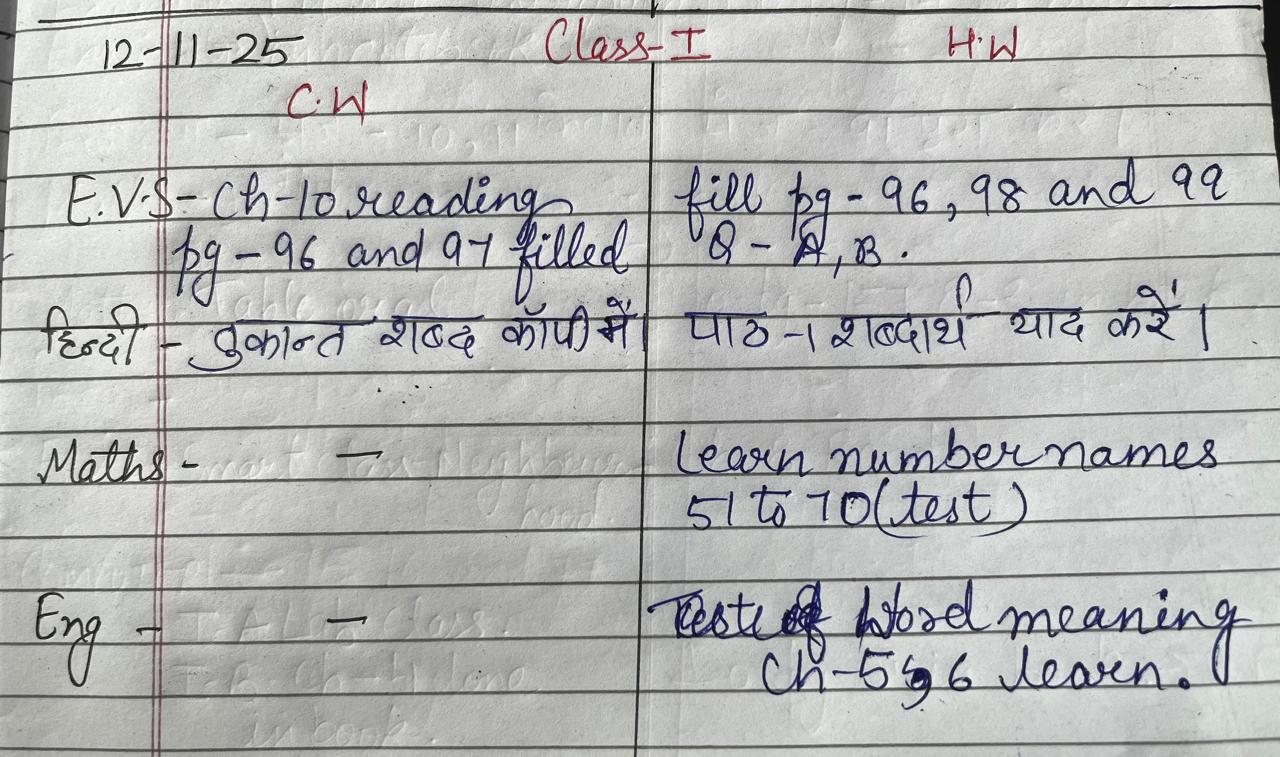 12-11-25 Class-I H.W
C.W
E.V.S - Ch-10 reading fill pg - 96, 98 and 99
pg - 96 and 97 filled Q - A, B.
हिन्दी - तुकान्त शब्द कॉपी में। पाठ -1 शब्दार्थ याद करें।
Maths - - Learn number names
51 to 70 (test)
Eng - - Test of Word meaning
Ch-5, 6 learn.